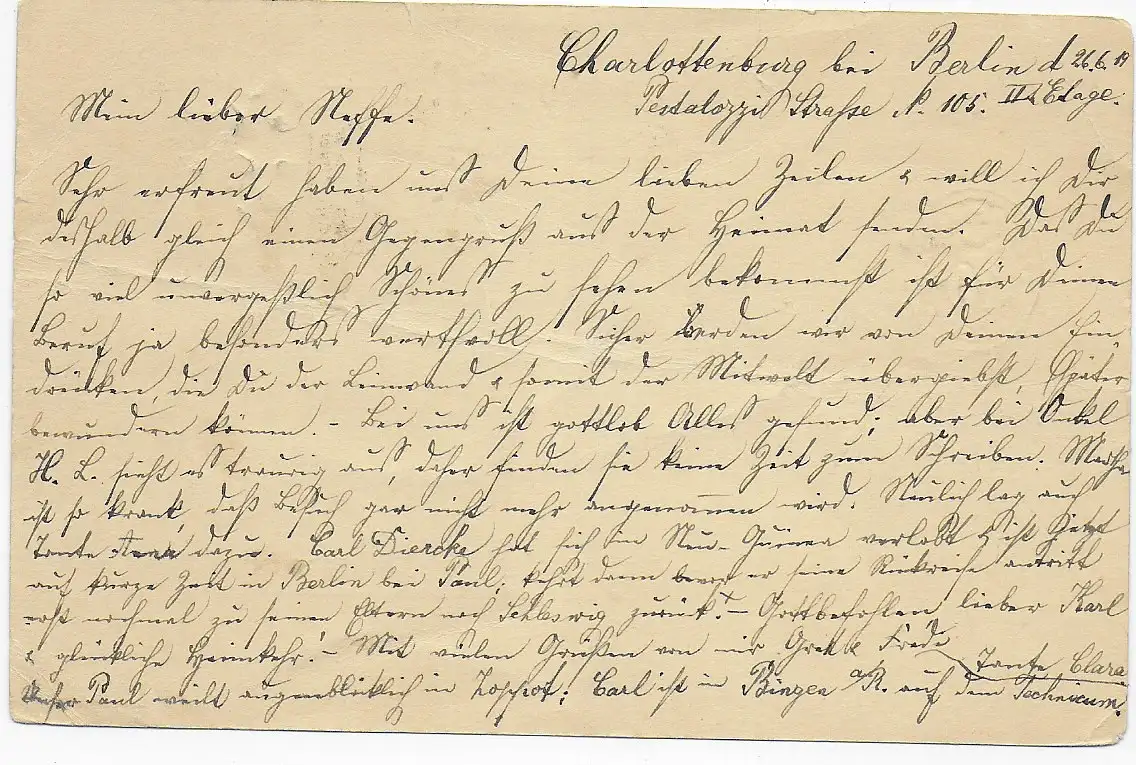 Charlottenburg bei Berlin d 26.6.19
Pestalozzi Strasse N. 105. II Etage.
Mein lieber Neffe.
Sehr erfreut haben uns Deine lieben Zeilen & will ich Dir
deshalb gleich einen Gegengruß aus der Heimat senden. Das Du
so viel unvergeßlich Schönes zu sehen bekommst ist für Deinen
Beruf ja besonders werthvoll. Sicher werden wir von Deinen Ein
drücken, die Du der Leinwand & somit der Mitwelt übergiebst, später
bewundern können. – Bei uns ist gottlob Alles gesund; aber bei Onkel
H. L. sieht es traurig aus, daher finden sie keine Zeit zum Schreiben. Martha
ist so krank, daß Besuch gar nicht mehr angenommen wird. Neulich lag auch
Tante Anna dazu. Carl Diercke hat sich in Neu-Guinea verlobt & ist jetzt
auf kurze Zeit in Berlin bei Paul; kehrt dann bevor er seine Rückreise antritt
erst nochmal zu seinen Eltern nach Schleswig zurück. – Gottbefohlen lieber Karl
& glückliche Heimkehr. – Mit vielen Grüßen von mir Gret & Frieda
Tante Clara.
Unser Paul weilt augenblicklich in Zoppot; Carl ist in Bingen a/R. auf dem Technicum.